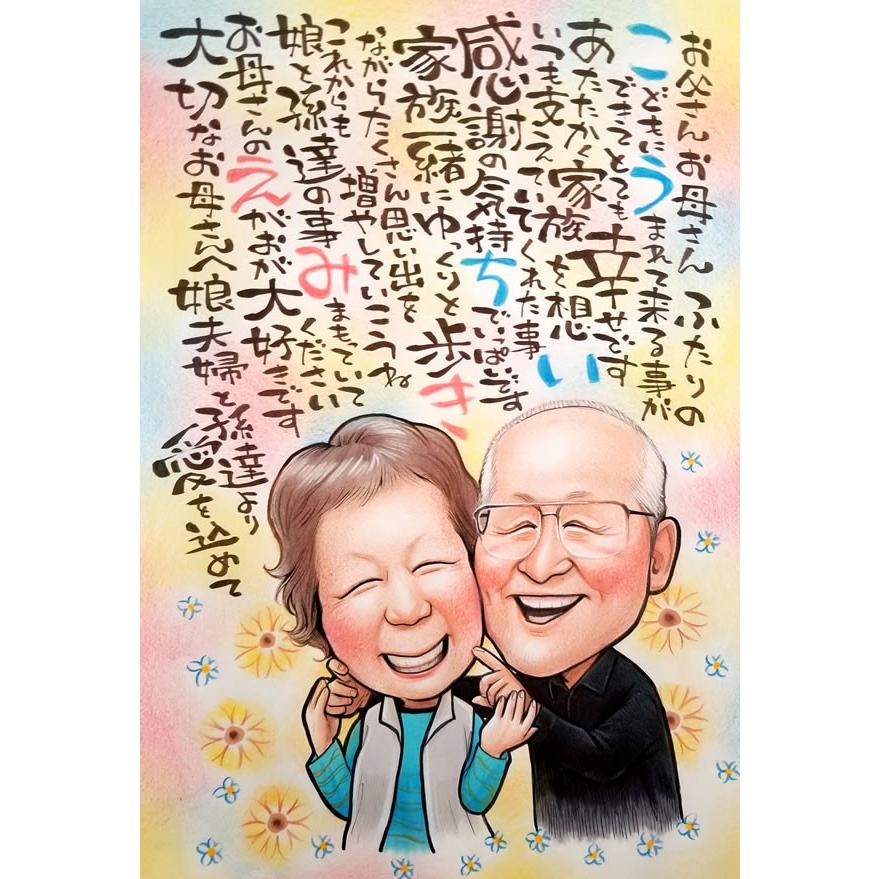 お父さんお母さんふたりの
こどもにうまれて来る事が
できてとても幸せです
あたたかく家族を想い
いつも支えていてくれた事
感謝の気持ちでいっぱいです
家族一緒にゆっくりと歩き
ながらたくさん思い出を
増やしていこうね
これからも
娘と孫達の事みまもっていて
ください
お母さんのえがおが大好きです
大切なお母さんへ娘夫婦と孫達より
愛を込めて